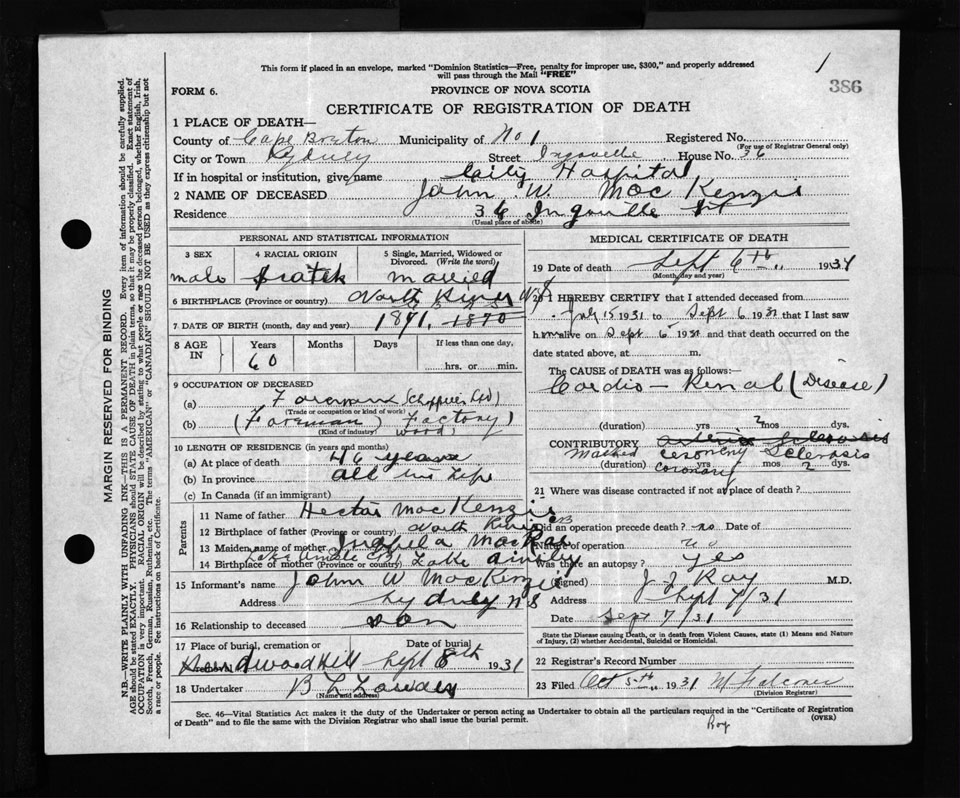 1
This form if placed in an envelope, marked "Dominion Statistics—Free, penalty for improper use, $300," and properly addressed
will pass through the Mail "FREE"
386
FORM 6. PROVINCE OF NOVA SCOTIA
CERTIFICATE OF REGISTRATION OF DEATH
1 PLACE OF DEATH—
County of Cape Breton Municipality of No 1 Registered No.
(For use of Registrar General only)
City or Town Sydney Street Ingoville House No. 36
If in hospital or institution, give name City Hospital
2 NAME OF DECEASED John W. MacKenzie
Residence 36 Ingoville St
(Usual place of abode)
PERSONAL AND STATISTICAL INFORMATION
3 SEX 4 RACIAL ORIGIN 5 Single, Married, Widowed or
Divorced. (Write the word)
male Scotch married
6 BIRTHPLACE (Province or country) North River N S
7 DATE OF BIRTH (month, day and year) 1871, 1870
8 AGE IN Years Months Days If less than one day,
60 hrs. or min.
9 OCCUPATION OF DECEASED
(a) Foreman
(Trade or occupation or kind of work)
(b) (Foreman Factory)
(Kind of industry) wood
10 LENGTH OF RESIDENCE (in years and months)
(a) At place of death 46 years
(b) In province all his life
(c) In Canada (if an immigrant)
Parents
11 Name of father Hector MacKenzie
12 Birthplace of father (Province or country) North River CB
13 Maiden name of mother MacRae
14 Birthplace of mother (Province or country) Lake Ainslie CB Lake Ainslie
15 Informant's name John W MacKenzie
Address Sydney N S
16 Relationship to deceased son
17 Place of burial, cremation Date of burial
or removal Hardwood Hill Sept 8th 1931
18 Undertaker
(Name and address)
MEDICAL CERTIFICATE OF DEATH
19 Date of death Sept 6th 1931
(Month, day and year)
20 I HEREBY CERTIFY that I attended deceased from
July 15 1931 to Sept 6 1931 that I last saw
him alive on Sept 6 1931 and that death occurred on the
date stated above, at m.
The CAUSE of DEATH was as follows:
Cardio - Renal (Disease)
(duration) yrs 2 mos. dys.
CONTRIBUTORY arterio sclerosis
Marked coronary Sclerosis
(duration) coronary yrs mos 2 dys.
21 Where was disease contracted if not at place of death?
Did an operation precede death? no Date of
Nature of operation no
Was there an autopsy? yes
(Signed) J J Roy M.D.
Address Sept 7/31
Date Sept 7/31
State the Disease causing Death, or in death from Violent Causes, state (1) Means and Nature
of Injury, (2) whether Accidental, Suicidal or Homicidal.
22 Registrar's Record Number
23 Filed Oct 5th 1931 Falconer
(Division Registrar)
Sec. 46—Vital Statistics Act makes it the duty of the Undertaker or person acting as Undertaker to obtain all the particulars required in the "Certificate of Registration
of Death" and to file the same with the Division Registrar who shall issue the burial permit. (OVER)
Roy
MARGIN RESERVED FOR BINDING
N.B.—WRITE PLAINLY WITH UNFADING INK—THIS IS A PERMANENT RECORD. Every item of information should be carefully supplied.
AGE should be stated EXACTLY. PHYSICIANS should STATE CAUSE OF DEATH in plain terms, so that it may be properly classified. Exact statement of
OCCUPATION is very important. RACIAL ORIGIN will be described by stating to what people or race the deceased person belonged, whether English, Irish,
Scotch, French, German, Russian, Ruthenian, etc. The terms "AMERICAN" or "CANADIAN" SHOULD NOT BE USED as they express citizenship but not
a race or people. See instructions on back of Certificate.